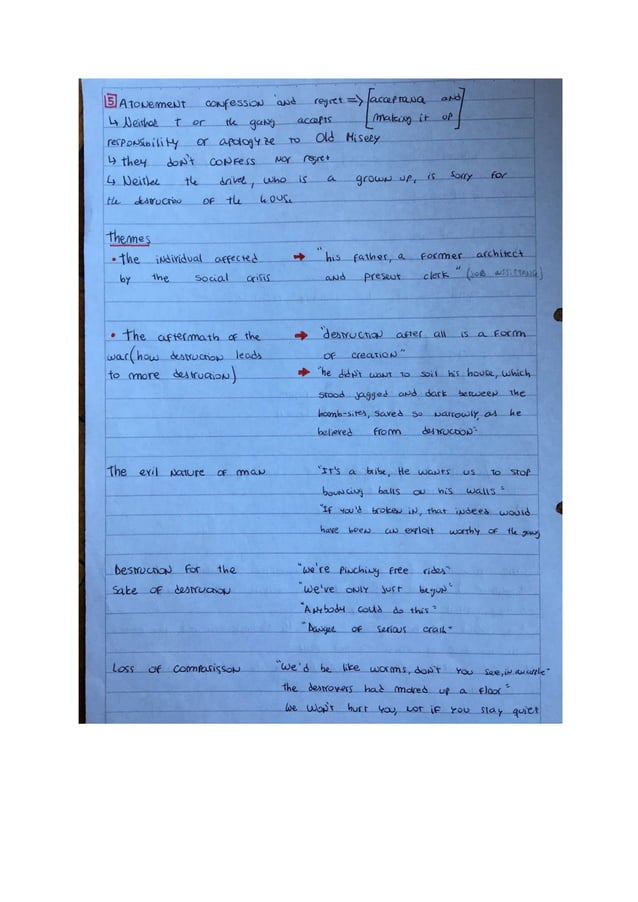 5 Atonement confession and regret => [acceptance and
↳ Neither T or the gang accepts making it up]
responsibility or apologyze to Old Misery
↳ they don't confess nor regret
↳ Neither the driver, who is a grown up, is sorry for
the destruction of the house
Themes
• The individual affected → "his father, a former architect
by the social crisis and present clerk" (job assistant)
• The aftermath of the → "destruction after all is a form
war (how destruction leads of creation"
to more destruction) → "he didn't want to soil his house, which
stood jagged and dark between the
bomb-sites, saved so narrowly, as he
believed from destruction"
The evil nature of man "It's a bribe, He wants us to stop
bouncing balls on his walls"
"If you'd broken in, that indeed would
have been an exploit worthy of the gang
Destruction for the "We're pinching free rides"
sake of destruction "We've only just begun"
"Anybody could do this"
"Danger of serious crash"
Loss of comparisson "We'd be like worms, don't you see, in an apple"
the destroyers had moved up a floor"
We won't hurt you, not if you stay quiet